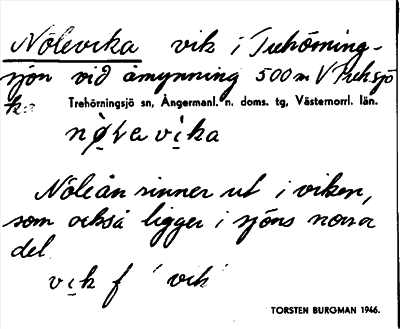 Nölevika vik i Trehörning-
sjön vid åmynning 500 m V Trehsjö
k:a
Trehörningsjö sn, Ångermanl. n. doms. tg, Västernorrl. län.
nø̀lavika
Nöleån rinner ut i viken,
som också ligger i sjöns norra
del.
vik f 'vik'
TORSTEN BURGMAN 1946.